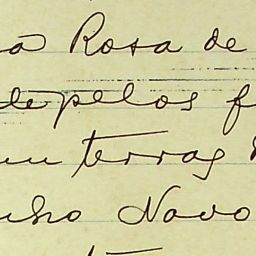 a Rosa de
te pelos f
um terras
nho Novo